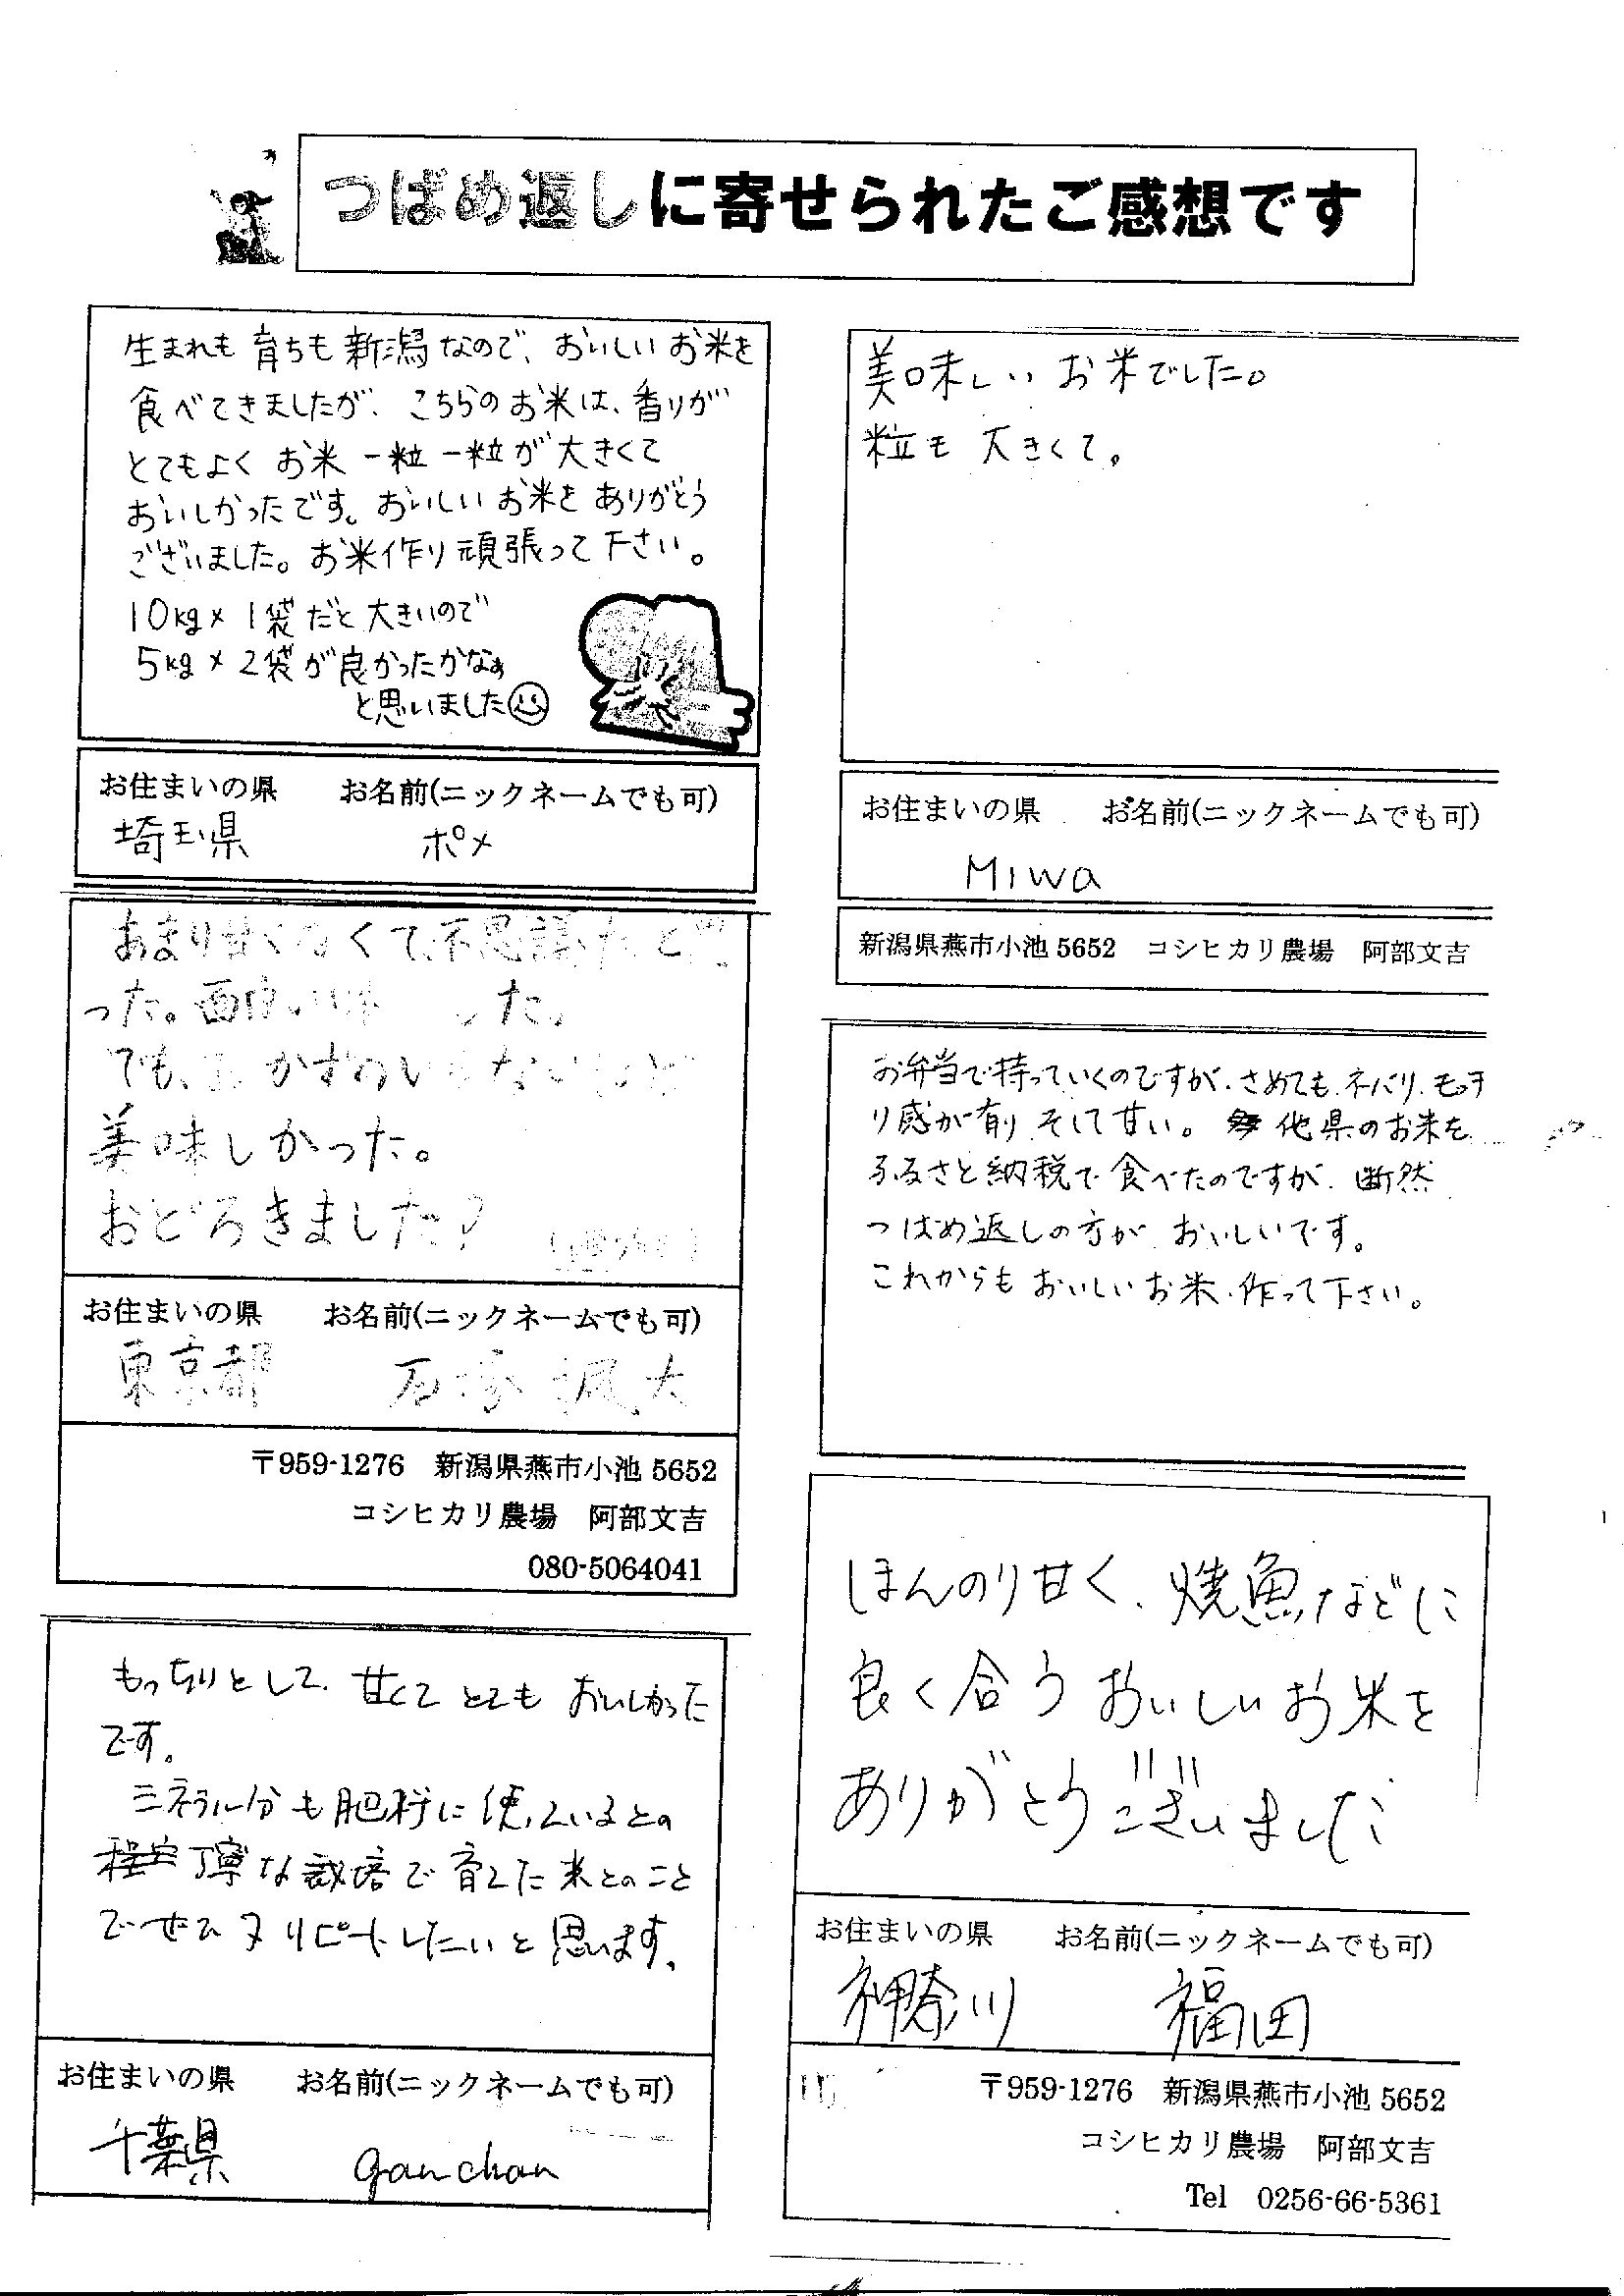 つばめ返しに寄せられたご感想です
生まれも育ちも新潟なので、おいしいお米を
食べてきましたが、こちらのお米は、香りが
とてもよくお米一粒一粒が大きくて
おいしかったです。おいしいお米をありがとう
ございました。お米作り頑張って下さい。
10kg×1袋だと大きいので
5kg×2袋が良かったかなぁ
と思いました
お住まいの県 お名前(ニックネームでも可)
埼玉県 ポメ
あまり甘くなくて、不思議だと
った。面白い味 した。
でも、おかずのいらないほど
美味しかった。
おどろきました?
お住まいの県 お名前(ニックネームでも可)
東京都 石塚 颯大
〒959-1276 新潟県燕市小池 5652
コシヒカリ農場 阿部文吉
080-5064041
もっちりとして、甘くてとてもおいしかった
です。
ミネラル分も肥料に使っているとの
丁寧な栽培で育てた米とのこと
でぜひ又リピートしたいと思います。
お住まいの県 お名前(ニックネームでも可)
千葉県 ganchan
美味しいお米でした。
粒も大きくて。
お住まいの県 お名前(ニックネームでも可)
Miwa
新潟県燕市小池 5652 コシヒカリ農場 阿部文吉
お弁当で持っていくのですが、さめてもネバリ、モッチ
リ感が有り、そして甘い。他県のお米を
ふるさと納税で食べたのですが、断然
つばめ返しの方がおいしいです。
これからもおいしいお米、作って下さい。
ほんのり甘く、焼魚などに
良く合うおいしいお米を
ありがとうございました
お住まいの県 お名前(ニックネームでも可)
神奈川 福田
〒959-1276 新潟県燕市小池 5652
コシヒカリ農場 阿部文吉
Tel 0256-66-5361